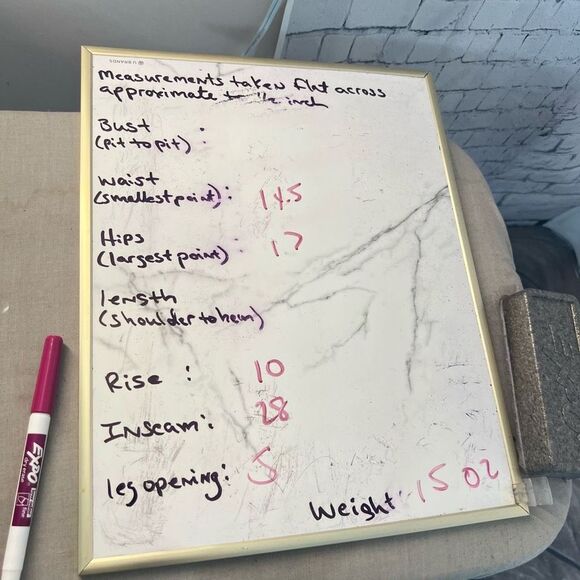 U BRANDS
measurements taken flat across
approximate to ½ inch
Bust :
(pit to pit) .
waist
(smallest point) : 14.5
Hips
(largest point) 17
length
(shoulder to hem)
Rise : 10
Inseam : 28
leg opening : 5
Weight : 15 oz
EXPO